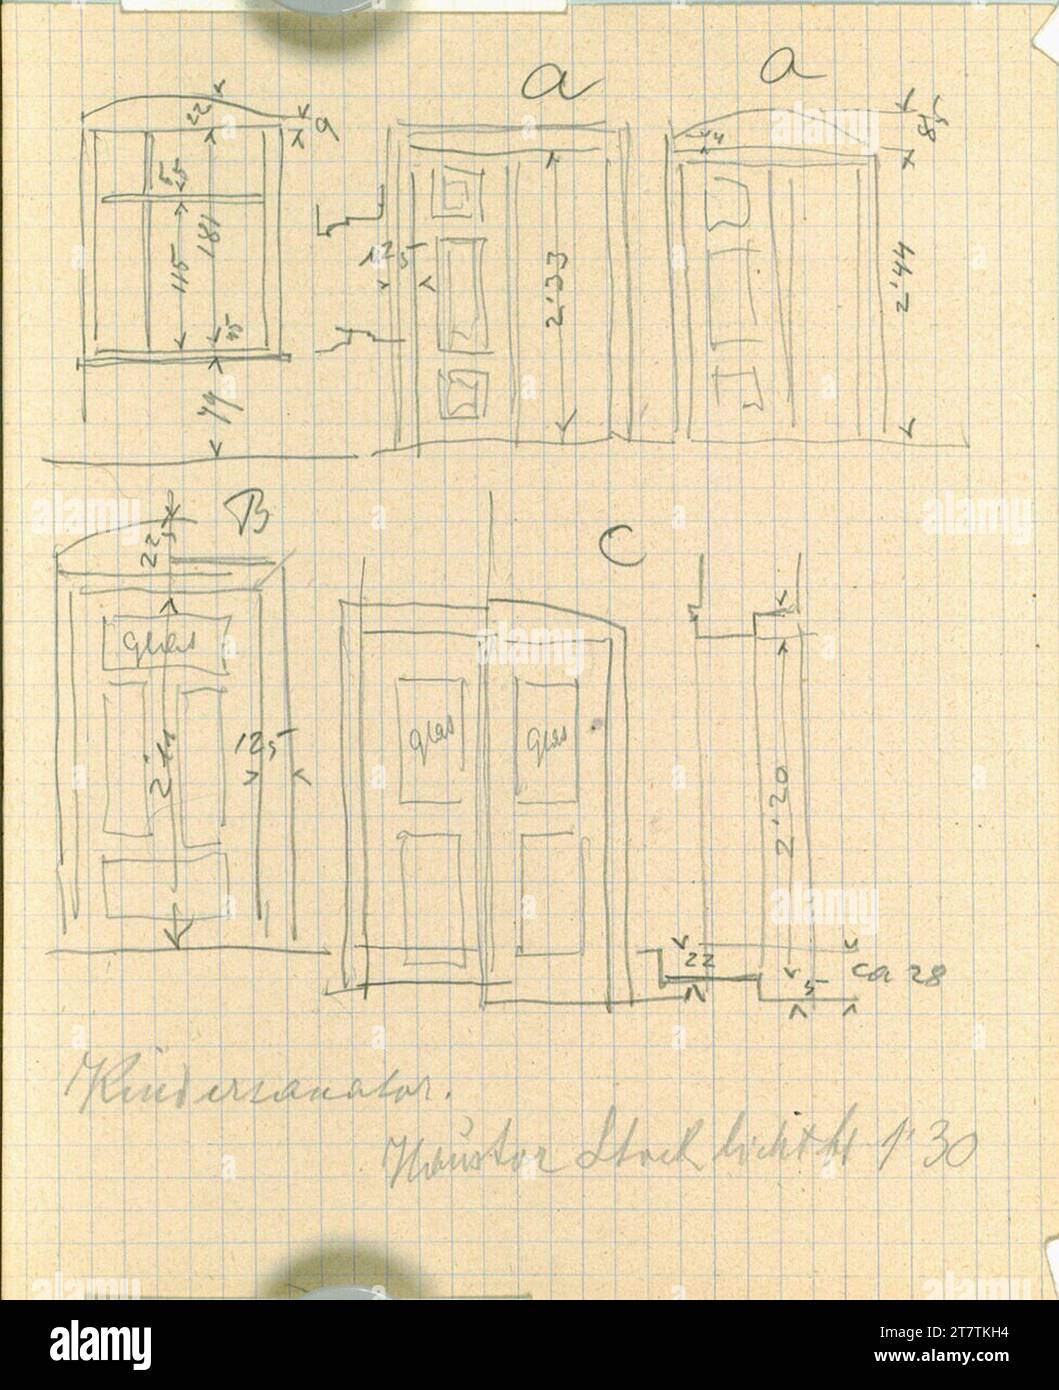 a
a
22
9
4
8,5
55
181
115
45
12,5
2'33
2'44
B
22,5
C
glas
glas
glas
2'11
12,5
2'20
22
5
ca 28
Kindersanator.
Haustor Stock lichte 1'30
alamy
Image ID: 2T7TKH4
www.alamy.com